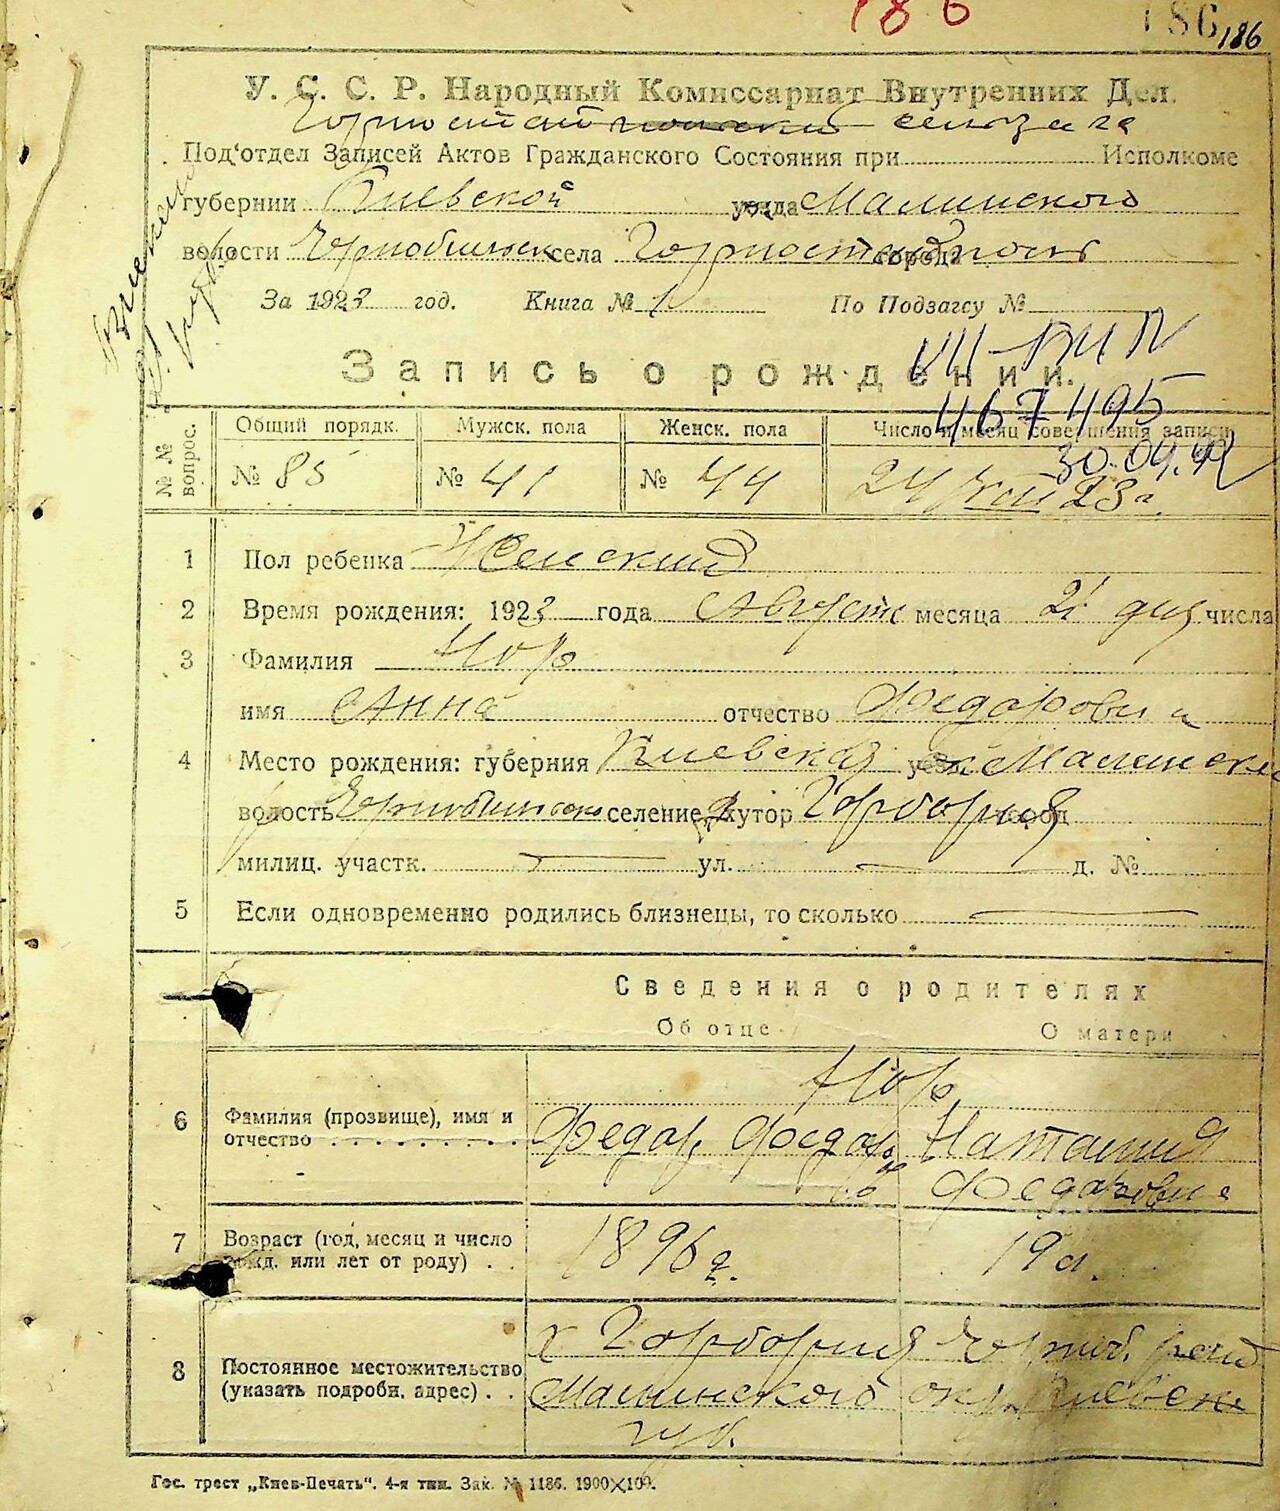 186
186
186
У. С. С. Р. Народный Комиссариат Внутренних Дел.
сельзага
Под'отдел Записей Актов Гражданского Состояния при Исполкоме
губернии Киевской уезда Малинского
волости Чернобыльск села Горностайполь города
За 1923 год. Книга № 1 По Подзагсу №
VII-БИ N
Запись о рождении.
467495
30.09.
№№ вопрос.
Общий порядк. Мужск. пола Женск. пола Число и месяц совершения записи
№ 85 № 41 № 44 24 23 г.
1 Пол ребенка Женский
2 Время рождения: 1923 года Август месяца 21 дня числа
3 Фамилия Нор
имя Анна отчество Федоровна
4 Место рождения: губерния Киевская Малинский
волость селение, хутор город
милиц. участк. ул. д. №
5 Если одновременно родились близнецы, то сколько
Сведения о родителях
Об отце О матери
Нор
6 Фамилия (прозвище), имя и
отчество Федор Федор Наталия
ов Федоровна
7 Возраст (год, месяц и число
рожд. или лет от роду) 1896 г. 19 л.
х
8 Постоянное местожительство
(указать подробн. адрес) Малинского окр. Киевск
губ.
Гос. трест „Киев-Печать“. 4-я тип. Зак. № 1186. 1900×100.